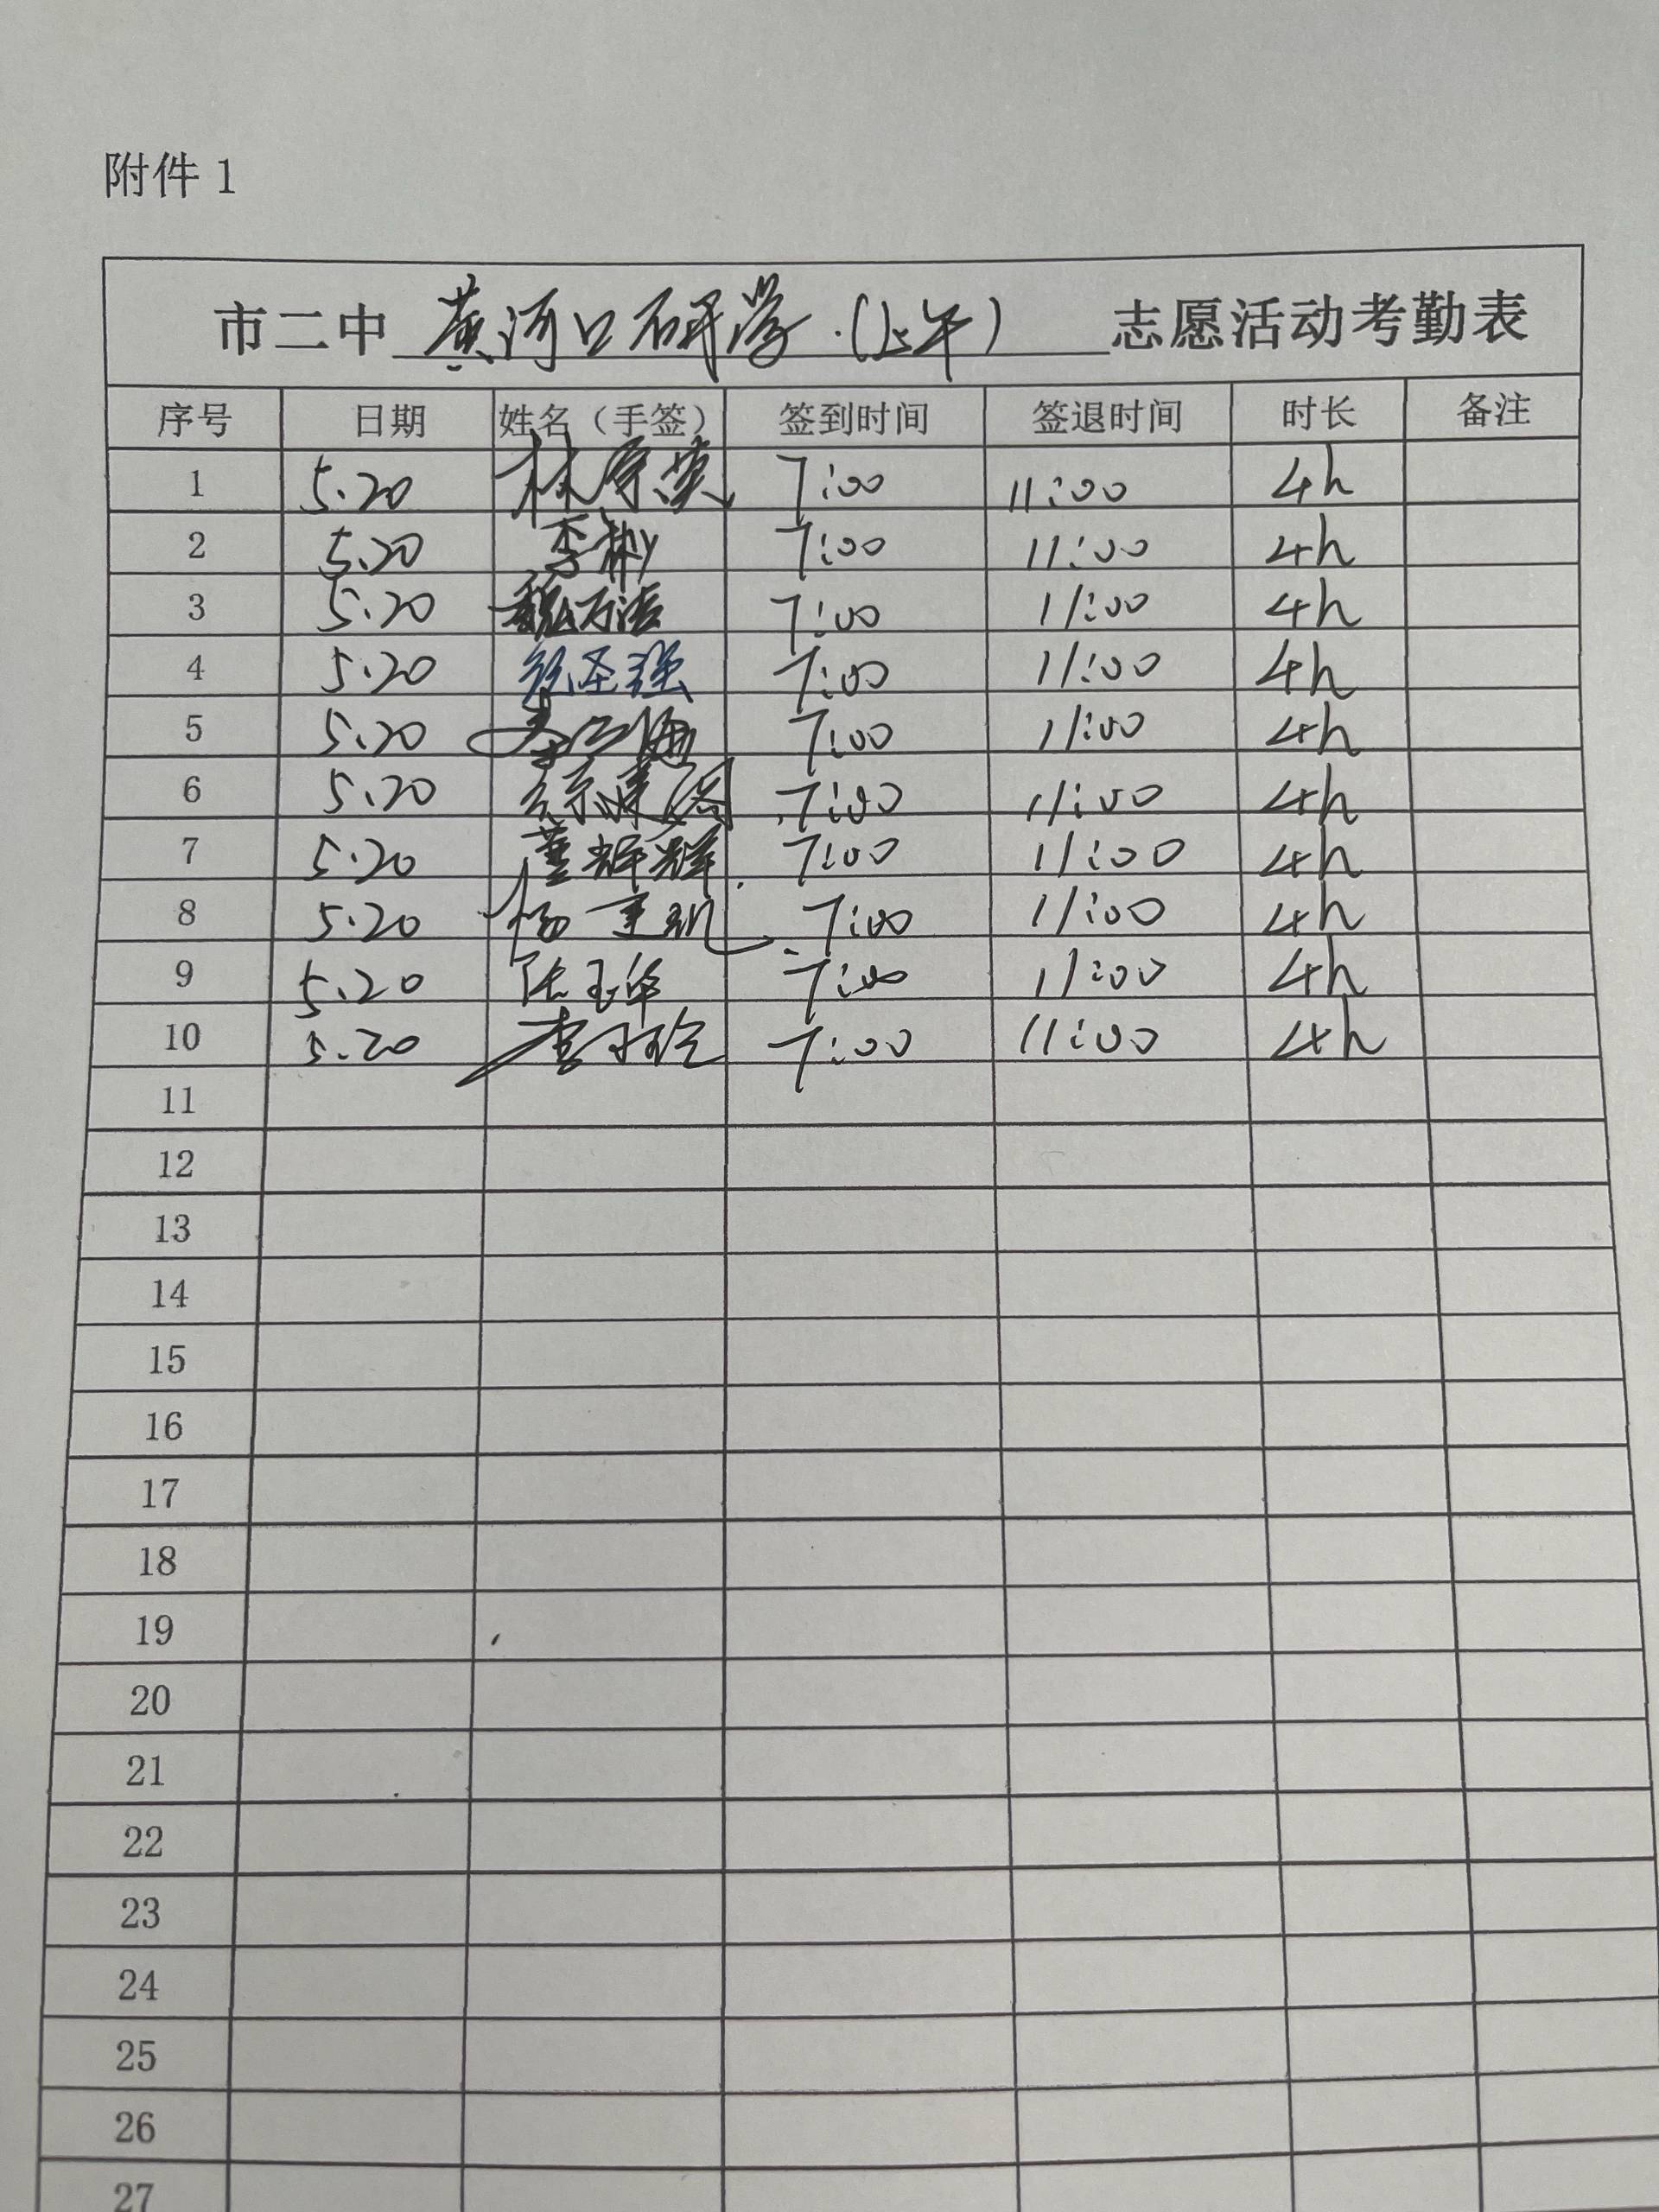 附件 1
市二中 黄河口研学.(上午) 志愿活动考勤表
序号 日期 姓名（手签） 签到时间 签退时间 时长 备注
1 5.20 7:00 11:00 4h
2 5.20 李彬 7:00 11:00 4h
3 5.20 7:00 11:00 4h
4 5.20 7:00 11:00 4h
5 5.20 7:00 11:00 4h
6 5.20 徐建国 7:00 11:00 4h
7 5.20 董辉辉 7:00 11:00 4h
8 5.20 7:00 11:00 4h
9 5.20 7:00 11:00 4h
10 5.20 7:00 11:00 4h
11
12
13
14
15
16
17
18
19
20
21
22
23
24
25
26
27